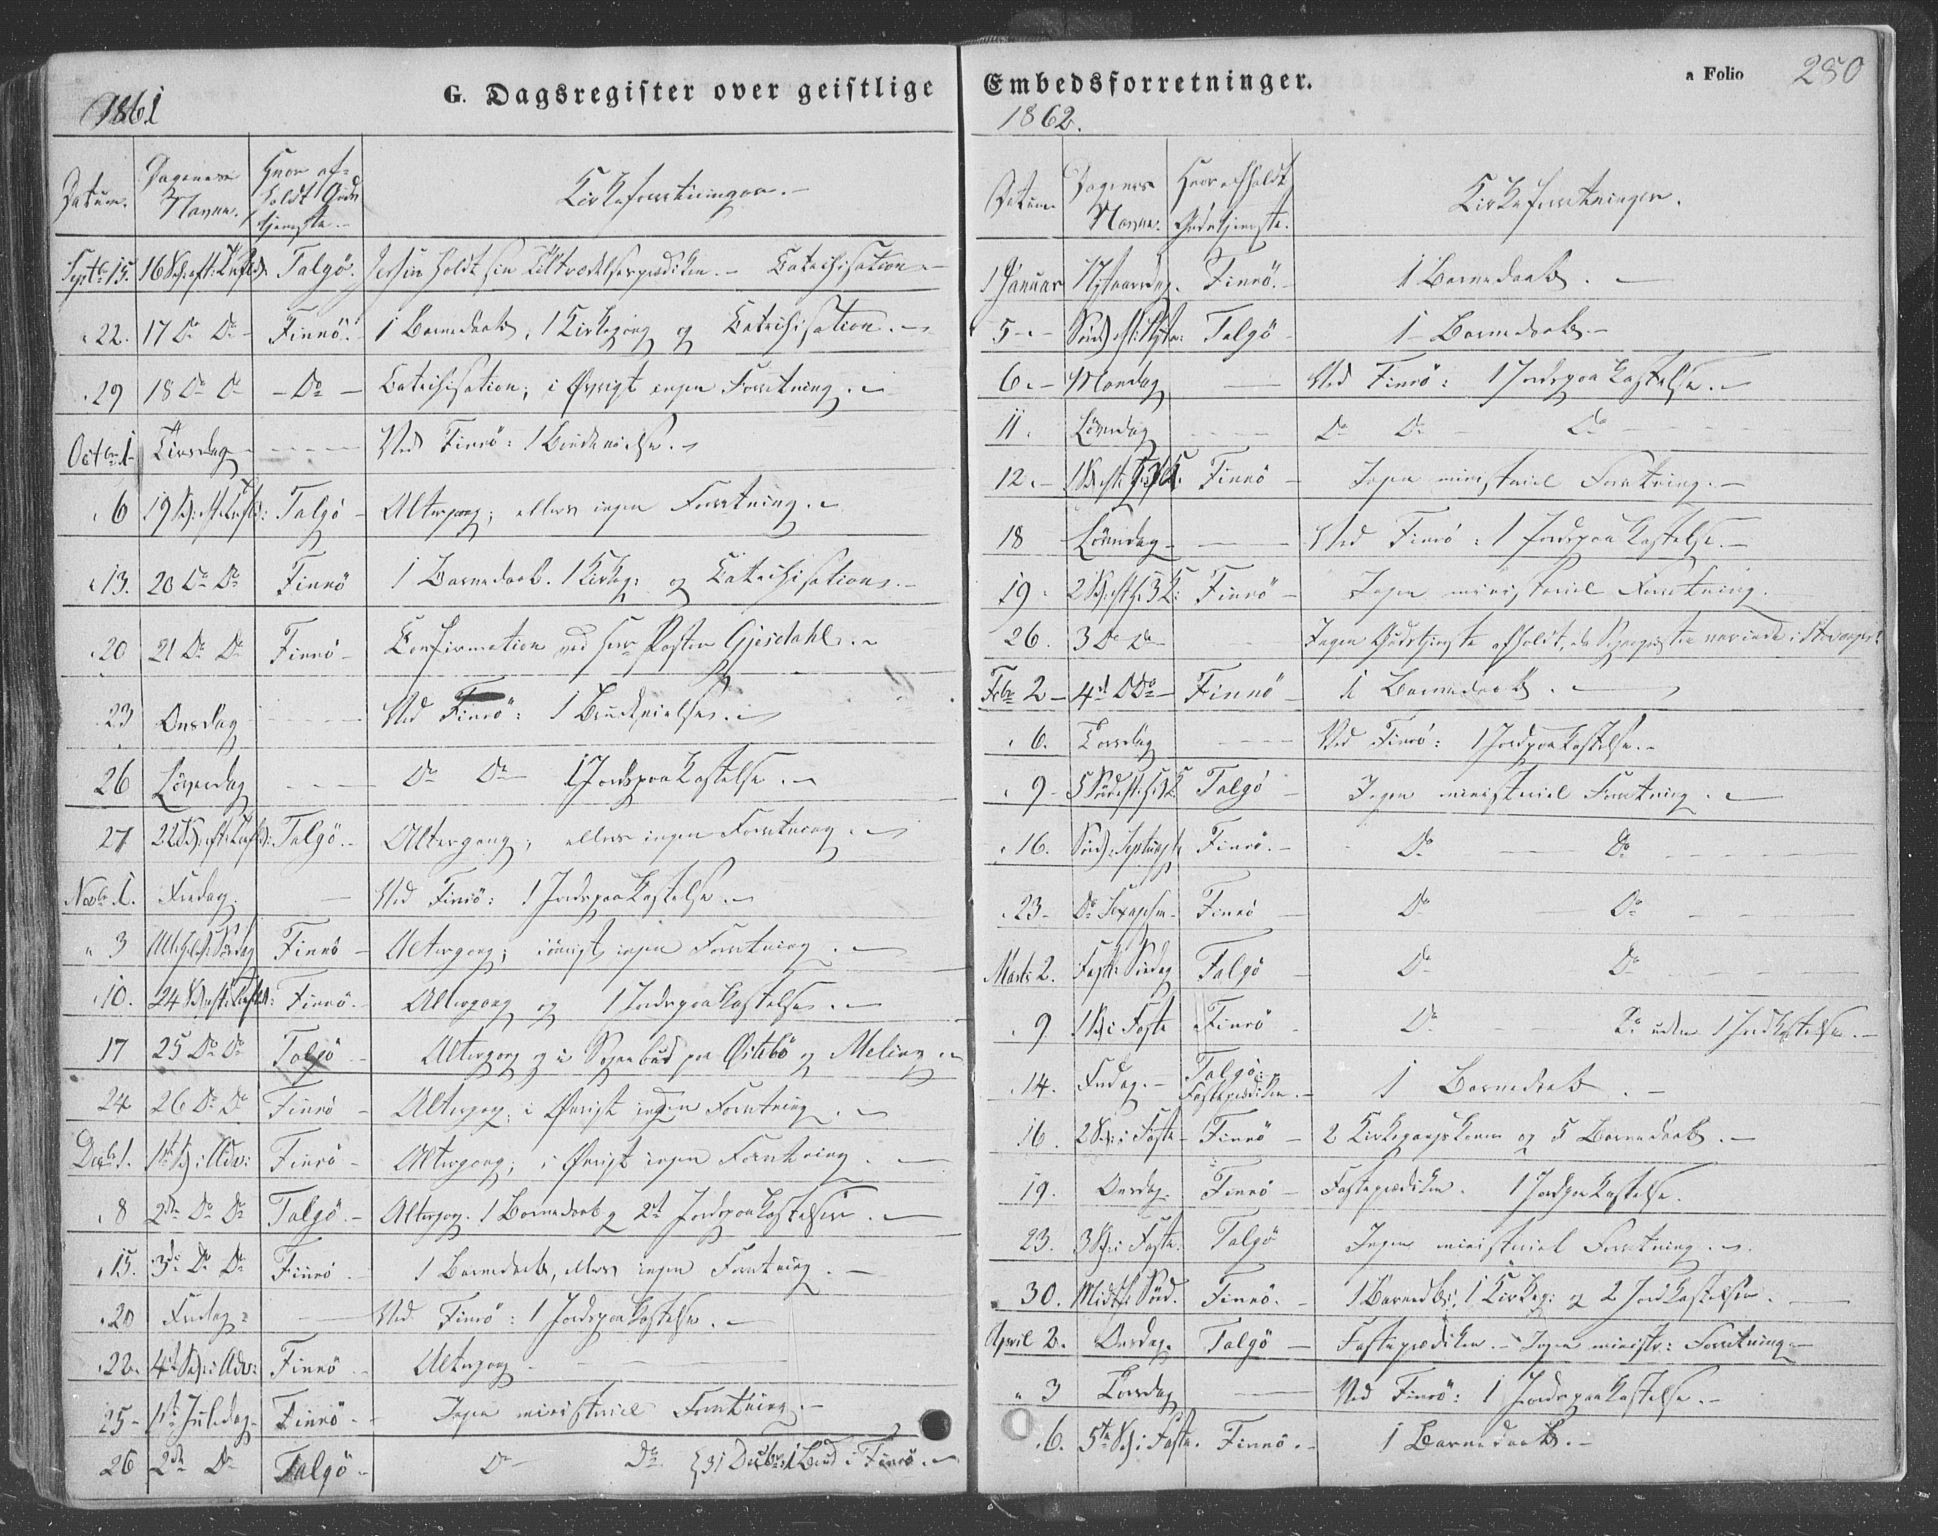 G. Dagsregister over geistlige
1861
Datum. Dagenes Navne. Hvor afholdt Gudstjeneste. Kirkeforretninger.
Septbr 15. 16 S: eft: Trefold: Talgö. holdt sin Tiltrædelsesprædiken. - Catechisation.
" 22. 17 Do Do - Finnö. 1 Barnedaab, 1 Kirkegang og Catechisation.
" 29 18 Do Do - Do - Catechisation; i Øvrigt ingen Forretning.
Octbr 1 Tirsdag - - - Ved Finnö: 1 Brudevielse.
" 6 19 S: eft: Trefold: Talgö - Altergang; ellers ingen Forretning.
" 13. 20 Do Do Finnö 1 Barnedaab. 1 Kirkeg: og Catechisation.
" 20 21 Do Do Finnö - Confirmation ved Herr Pastor Gjesdahl.
23 Onsdag - - - Ved Finnö: 1 Brudevielse.
26 Löverdag - - - Do Do 1 Jordspaakastelse.
27 22 S: eft: Trefold: Talgö. - Altergang; ellers ingen Forretning.
Novbr 1. Fredag. - Ved Finnö: 1 Jordspaakastelse.
" 3 Allehelgens Söndag Finnö - Altergang; i øvrigt ingen Forretning.
" 10. 24 S: eft: Trefold: Finnö. - Altergang og 1 Jordspaakastelse.
17 25 Do Do Talgö - Altergang og i Sognebud paa Östebö og Meling.
24 26 Do Do Finnö - Altergang; i Øvrigt ingen Forretning.
Decbr 1. 1ste S: i Adv: Finnö - Altergang; i Øvrigt ingen Forretning.
" 8 2den Do Do Talgö. - Altergang. 1 Barnedaab og 2 Jordspaakastelser.
" 15. 3die Do Do Finnö - 1 Barnedaab, ellers ingen Forretning.
" 20 Fredag - Ved Finnö: 1 Jordspaakastelse.
" 22. 4de S: i Adv: Finnö - Altergang - - -
25 - 1ste Juledag - Finnö. - Ingen ministeriel Forretning.
26 2den Do Talgö - Do Do 31 Decbr: 1 Brud i Finnö.
Embedsforretninger. a Folio 280
1862.
Datum Dagenes Navne. Hvor afholdt Gudstjeneste. Kirkeforretninger.
1 Januar Nytaarsdag. Finnö. - 1 Barnedaab.
5 - Sönd: eft: Nytaar: Talgö - 1 Barnedaab.
6. - Mandag - Ved Finnö: 1 Jordspaakastelse.
11. Löverdag - - - Do Do Do - - -
12. - 1 S: eft: H 3 K: Finnö - Ingen ministeriel Forretning.
18 Löverdag - - - Ved Finnö: 1 Jordspaakastelse.
19. 2 S: eft: H 3 K: Finnö - Ingen ministeriel Forretning.
26. 3 Do Do - Ingen Gudstjeneste afholdt, da Sognepresten var inde i Stavanger.
Febr 2 - 4de Do Do - Finnö - 1 Barnedaab.
" 6. Torsdag - - - Ved Finnö: 1 Jordpaakastelse.
" 9 - 5 Sönd: eft: H 3 K: Talgö - Ingen ministeriel Forretning.
" 16. Sönd: Septuages: Finnö. - Do Do - - -
" 23 - Do Sexagesima - Finnö - Do Do - - -
Marts 2. Faste Söndag Talgö - Do Do - - -
" 9 1 S: i Faste Finnö - Do Do uden 1 Jordkastelse.
" 14. Fredag. - Talgö: Fasteprædiken. - 1 Barnedaab.
16. 2 S: i Faste - Finnö - 2 Kirkegangskoner og 5 Barnedaab.
19. Onsdag. Finnö - Fasteprædiken. 1 Jordpaakastelse.
23. 3 S: i Faste. Talgö Ingen ministeriel Forretning.
30. Midtf: Sönd. Finnö. - 1 Barnedb: 1 Kirkeg: og 2 Jordkastelser.
April 2. Onsdag. Talgö - Fasteprædiken. - Ingen ministr: Forretning.
" 3 Torsdag - Ved Finnö: 1 Jordspaakastelse.
" 6. 5te S: i Faste. Finnö. - 1 Barnedaab.